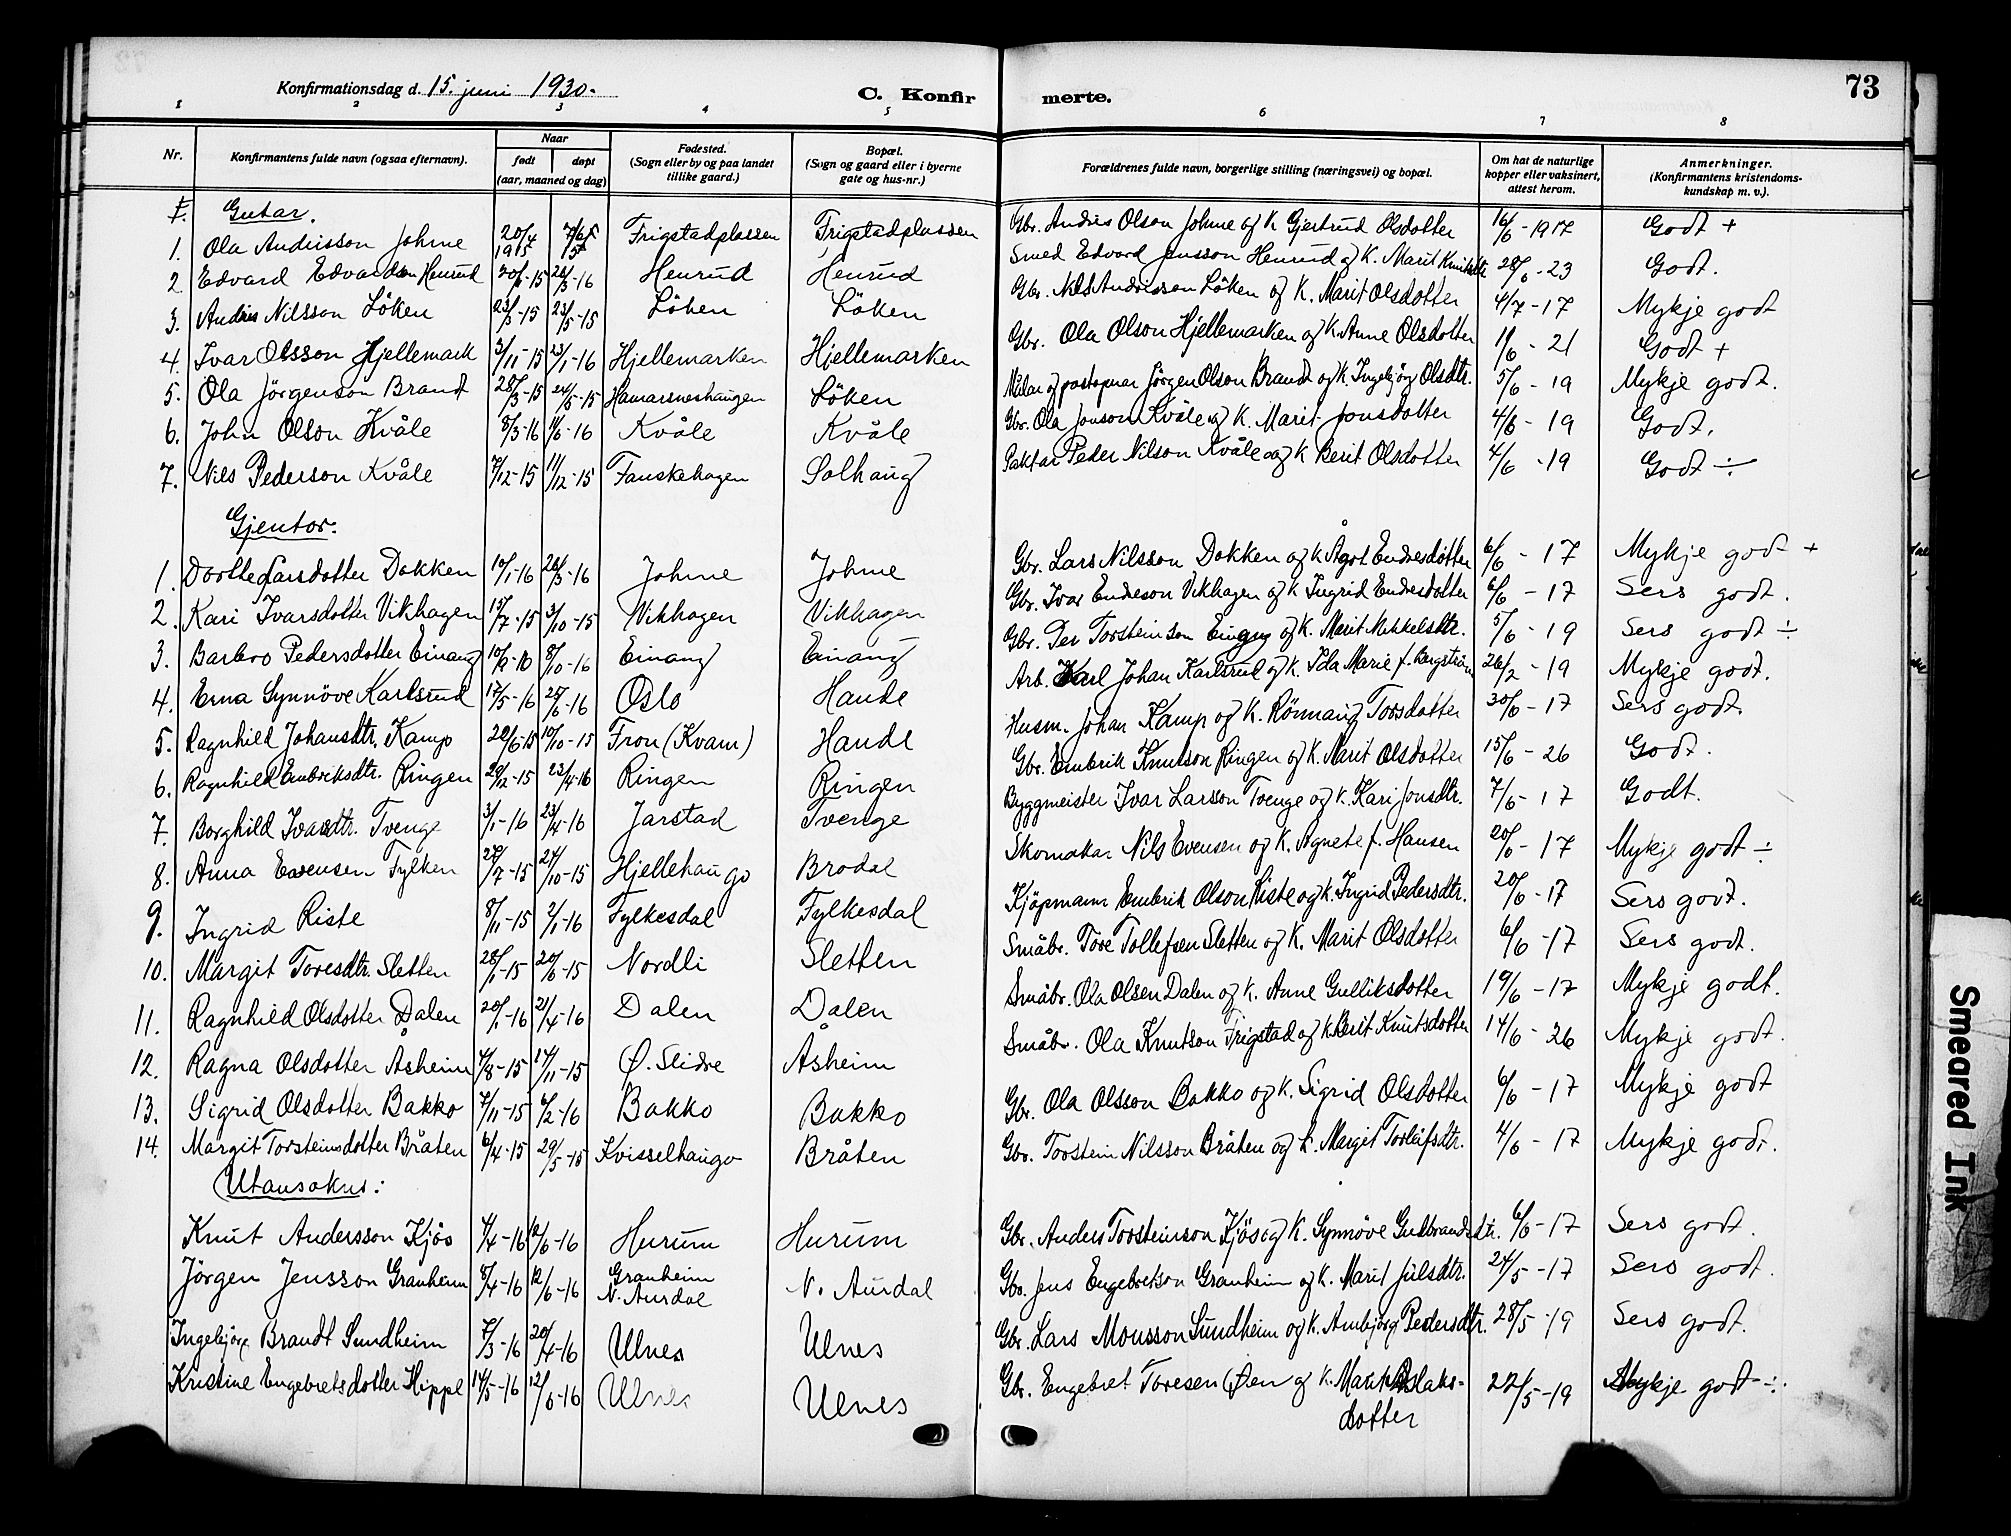 73
Konfirmationsdag d. 15. juni 1930.
C. Konfirmerte.
1 2 3 4 5 6 7 8
Nr. Konfirmantens fulde navn (ogsaa efternavn). Naar født døpt (aar, maaned og dag) Fødested. (Sogn eller by og paa landet tillike gaard.) Bopæl. (Sogn og gaard eller i byerne gate og hus-nr.) Forældrenes fulde navn, borgerlige stilling (næringsvei) og bopæl. Om hat de naturlige kopper eller vaksinert, attest herom. Anmerkninger. (Konfirmantens kristendomskundskap m. v.).
I. Gutar.
1. Ola Andrisson Johme 20/4 1915 Frigstadplassen Frigstadplassen Gbr. Andris Olson Johme og k. Gjertrud Olsdotter 16/6-1917 Godt +
2. Edvard Edvardson Henrud -15 26/3-16 Henrud Henrud Smed Edvard Jensson Henrud og k. Marit 28/6-23 Godt.
3. Andris Nilsson Löken 23/3-15 23/5-15 Löken Löken Gbr. Nils Andrisson Löken og k. Marit Olsdotter 4/7-17 Mykje godt
4. Ivar Olsson Hjellemark 3/11-15 23/1-16 Hjellemarken Hjellemarken Gbr. Ola Olson Hjellemarken og k. Anne Olsdotter 11/6-21 Godt +
5. Ola Jörgenson Brandt 28/3-15 24/5-15 Löken Målar og postopnar Jörgen Olson Brandt og k. Ingebjörg Olsdtr. 5/6-19 Mykje godt.
6. John Olson Kvåle 8/3-16 11/6-16 Kvåle Kvåle Gbr. Ola Jonson Kvåle og k. Marit Jonsdotter 4/6-19 Godt.
7. Nils Pederson Kvåle 7/12-15 11/12-15 Fauskehagen Solhaug Paktar Peder Nilson Kvåle og k. Berit Olsdotter 4/6-19 Godt ÷
Gjentor.
1. Dorthe Larsdotter Dokken 10/1-16 26/3-16 Johme Johme Gbr. Lars Nilsson Dokken og k. Ågot Endresdotter 6/6-17 Mykje godt +
2. Kari Ivarsdotter Vikhagen 15/7-15 3/10-15 Vikhagen Vikhagen Gbr. Ivar Endreson Vikhagen og k. Ingrid Endresdotter 6/6-17 Sers godt.
3. Barbro Pedersdotter Einang 8/10-16 Einang Einang Gbr. Per Torsteinson Einang og k. Marit Mikkelsdtr. 5/6-19 Sers godt ÷
4. Erna Synnöve Karlsrud 17/5-16 25/6-16 Oslo Hande Arb. Karl Johan Karlsrud og k. Ida Marie f. Bergström 26/2-19 Mykje godt.
5. Ragnhild Johansdtr. Kamp 20/6-15 10/10-15 Fron (Kvam) Hande Husm. Johan Kamp og k. Rönnaug Torsdotter 30/6-17 Sers godt.
6. Ragnhild Embriksdtr. Ringen 29/12-15 23/4-16 Ringen Ringen Gbr. Embrik Knutson Ringen og k. Marit Olsdotter 15/6-26 Godt.
7. Borghild Ivarsdtr. Tvenge 3/1-16 23/4-16 Jarstad Tvenge Byggmeister Ivar Larsson Tvenge og k. Kari Jonsdtr. 7/6-17 Godt.
8. Anna Evensen Fylken 27/7-15 24/10-15 Hjellehaugo Brodal Skomakar Nils Evensen og k. Agnete f. Hansen 20/6-17 Mykje godt ÷
9. Ingrid Riste 8/11-15 2/1-16 Fylkesdal Fylkesdal Kjöpmann Embrik Olson Riste og k. Ingrid Pedersdtr. 20/6-17 Sers godt.
10. Margit Toresdtr. Sletten 28/1-15 20/6-15 Nordli Sletten Småbr. Tore Tollefsen Sletten og k. Marit Olsdotter 6/6-17 Sers godt.
11. Ragnhild Olsdotter Dalen 20/1-16 21/4-16 Dalen Dalen Småbr. Ola Olsen Dalen og k. Anne Gulliksdotter 19/6-17 Mykje godt.
12. Ragna Olsdotter Åsheim 7/8-15 14/11-15 Ø. Slidre Åsheim Småbr. Ola Knutson Frigstad og k. Berit Knutsdotter 14/6-26 Mykje godt.
13. Sigrid Olsdotter Bakko 7/11-15 6/2-16 Bakko Bakko Gbr. Ola Olsson Bakko og k. Sigrid Olsdotter 6/6-17 Mykje godt
14. Margit Torsteinsdotter Bråten 6/4-15 29/5-15 Kvisselhaugo Bråten Gbr. Torstein Nilsson Bråten og k. Margit Torleifsdtr. 4/6-17 Mykje godt.
Utansokns:
Knut Andersson Kjös 4/4-16 12/6-16 Hurum Hurum Gbr. Anders Torsteinson Kjös og k. Synnöve Gudbrandsdtr. 6/6-17 Sers godt.
Jörgen Jensson Granheim 8/4-16 12/6-16 Granheim N. Aurdal N. Aurdal Gbr. Jens Engebretson Granheim og k. Marit Julsdtr. 24/5-17 Sers godt.
Ingebjörg Brandt Sundheim 7/3-16 20/4-16 Ulnes Ulnes Gbr. Lars Monsson Sundheim og k. Ambjörg Pedersdtr. 28/5-19 Sers godt.
Kristine Engebretsdotter Hippe 14/5-16 12/6-16 Ulnes Ulnes Gbr. Engebret Toresen Øen og k. Marit Aslaks-
dotter 22/5-19 Mykje godt ÷
Smeared Ink